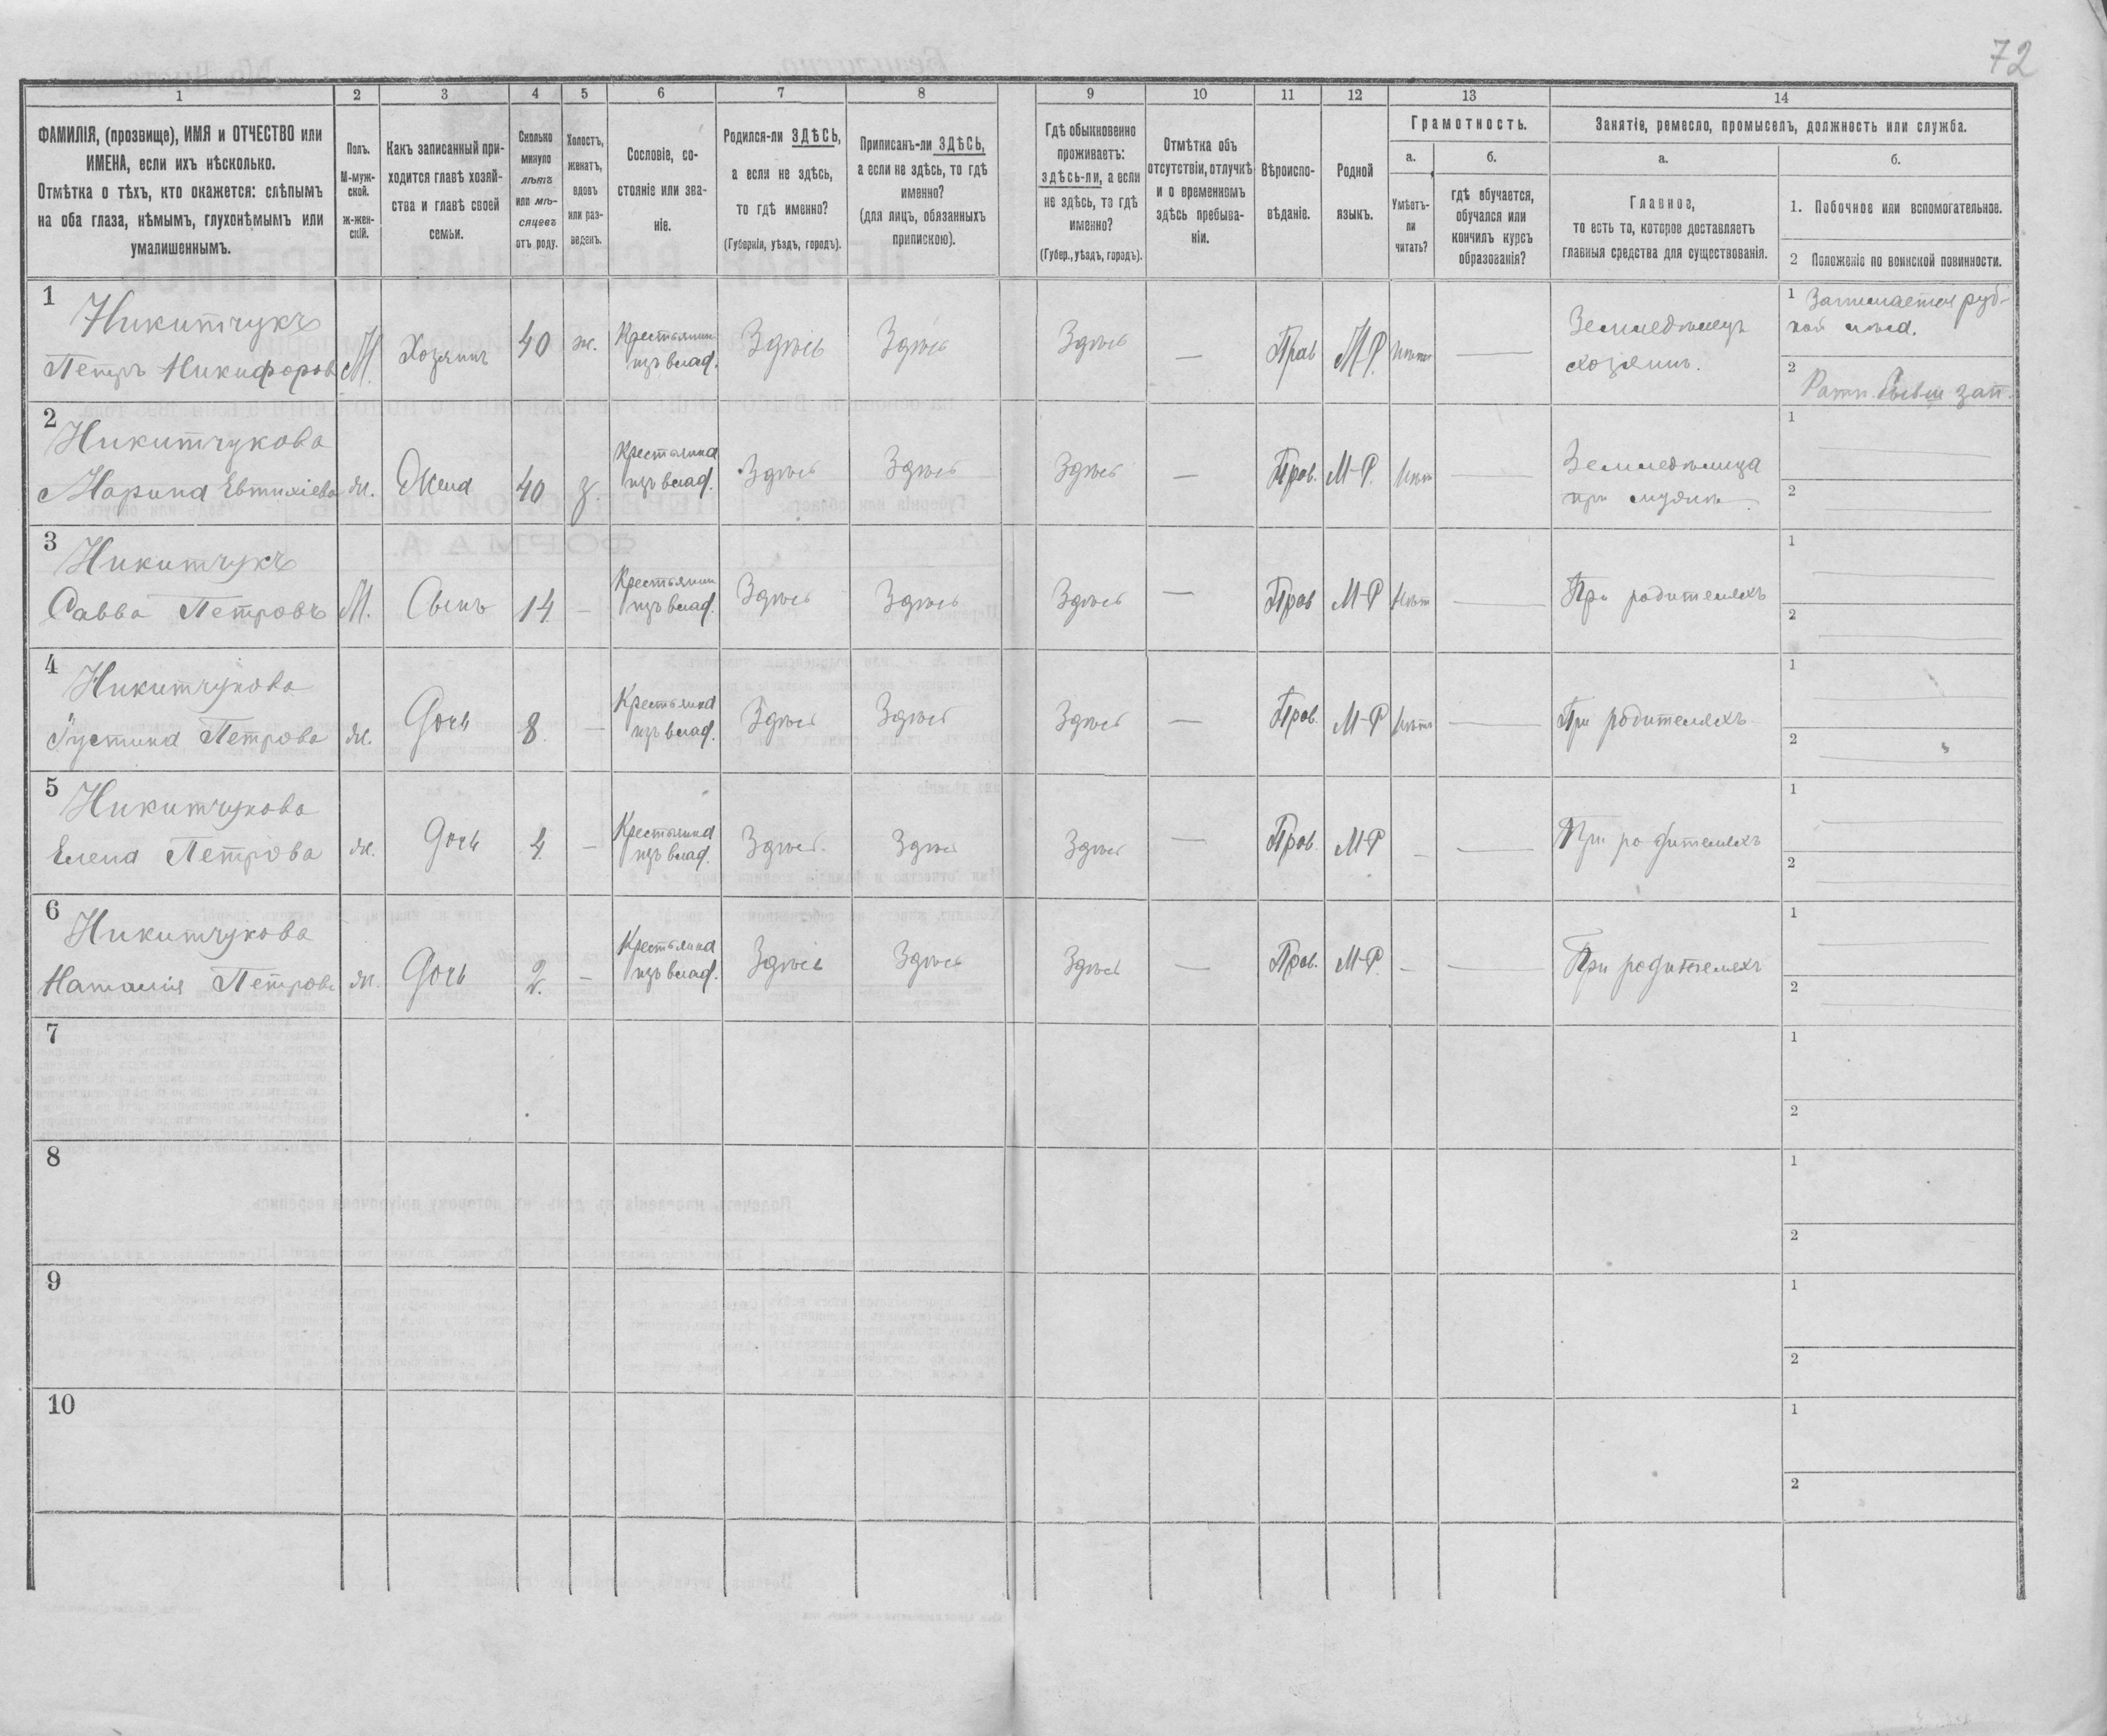 72
1 2 3 4 5 6 7 8 9 10 11 12 13 14
ФАМИЛІЯ, (прозвище), ИМЯ и ОТЧЕСТВО или
ИМЕНА, если ихъ нѣсколько.
Отмѣтка о тѣхъ, кто окажется: слѣпымъ
на оба глаза, нѣмымъ, глухонѣмымъ или
умалишеннымъ.
Полъ.
М-муж-
ской.
ж-жен-
скій.
Какъ записанный при-
ходится главѣ хозяй-
ства и главѣ своей
семьи.
Сколько
минуло
лѣтъ
или мѣ-
сяцевъ
отъ роду.
Холостъ,
женатъ,
вдовъ
или раз-
веденъ.
Сословіе, со-
стояніе или зва-
ніе.
Родился-ли ЗДѢСЬ,
а если не здѣсь,
то гдѣ именно?
(Губернія, уѣздъ, городъ).
Приписанъ-ли ЗДѢСЬ,
а если не здѣсь, то гдѣ
именно?
(для лицъ, обязанныхъ
припискою).
Гдѣ обыкновенно
проживаетъ:
здѣсь-ли, а если
не здѣсь, то гдѣ
именно?
(Губер., уѣздъ, городъ).
Отмѣтка объ
отсутствіи, отлучкѣ
и о временномъ
здѣсь пребыва-
ніи.
Вѣроиспо-
вѣданіе.
Родной
языкъ.
Грамотность.
а.
Умѣетъ-
ли
читать?
б.
гдѣ обучается,
обучался или
кончилъ курсъ
образованія?
Занятіе, ремесло, промыселъ, должность или служба.
а.
Главное,
то есть то, которое доставляетъ
главныя средства для существованія.
б.
1. Побочное или вспомогательное.
2 Положеніе по воинской повинности.
1
Никитчукъ
Петръ Никифоровъ М. Хозяинъ 40 ж. Крестьянин
изъ влад. Здѣсь Здѣсь Здѣсь — Прав М.Р. Нѣтъ — Земледѣлецъ
хозяинъ.
1 Занимается руб-
кой лѣса.
2 Ратн. бывш зап.
2
Никитчукова
Марина Евтихіева ж. Жена 40 з. Крестьянка
изъ влад. Здѣсь Здѣсь Здѣсь — Прав. М-Р. Нѣт — Земледѣлица
при мужѣ.
1
2
3
Никитчукъ
Савва Петровъ М. Сынъ 14 — Крестьянин
изъ влад. Здѣсь Здѣсь Здѣсь — Прав М-Р Нѣт — При родителяхъ
1
2
4
Никитчукова
Іустина Петрова ж. Дочь 8. — Крестьянка
изъ влад. Здѣсь Здѣсь Здѣсь — Прав. М-Р Нѣтъ — При родителяхъ
1
2
5
Никитчукова
Елена Петрова ж. Дочь 4. — Крестьянка
изъ влад. Здѣсь Здѣсь Здѣсь — Прав. М-Р — — При родителяхъ
1
2
6
Никитчукова
Наталія Петрова ж. Дочь 2. — Крестьянка
изъ влад. Здѣсь Здѣсь Здѣсь — Прав. М-Р. — — При родителяхъ
1
2
7
1
2
8
1
2
9
1
2
10
1
2